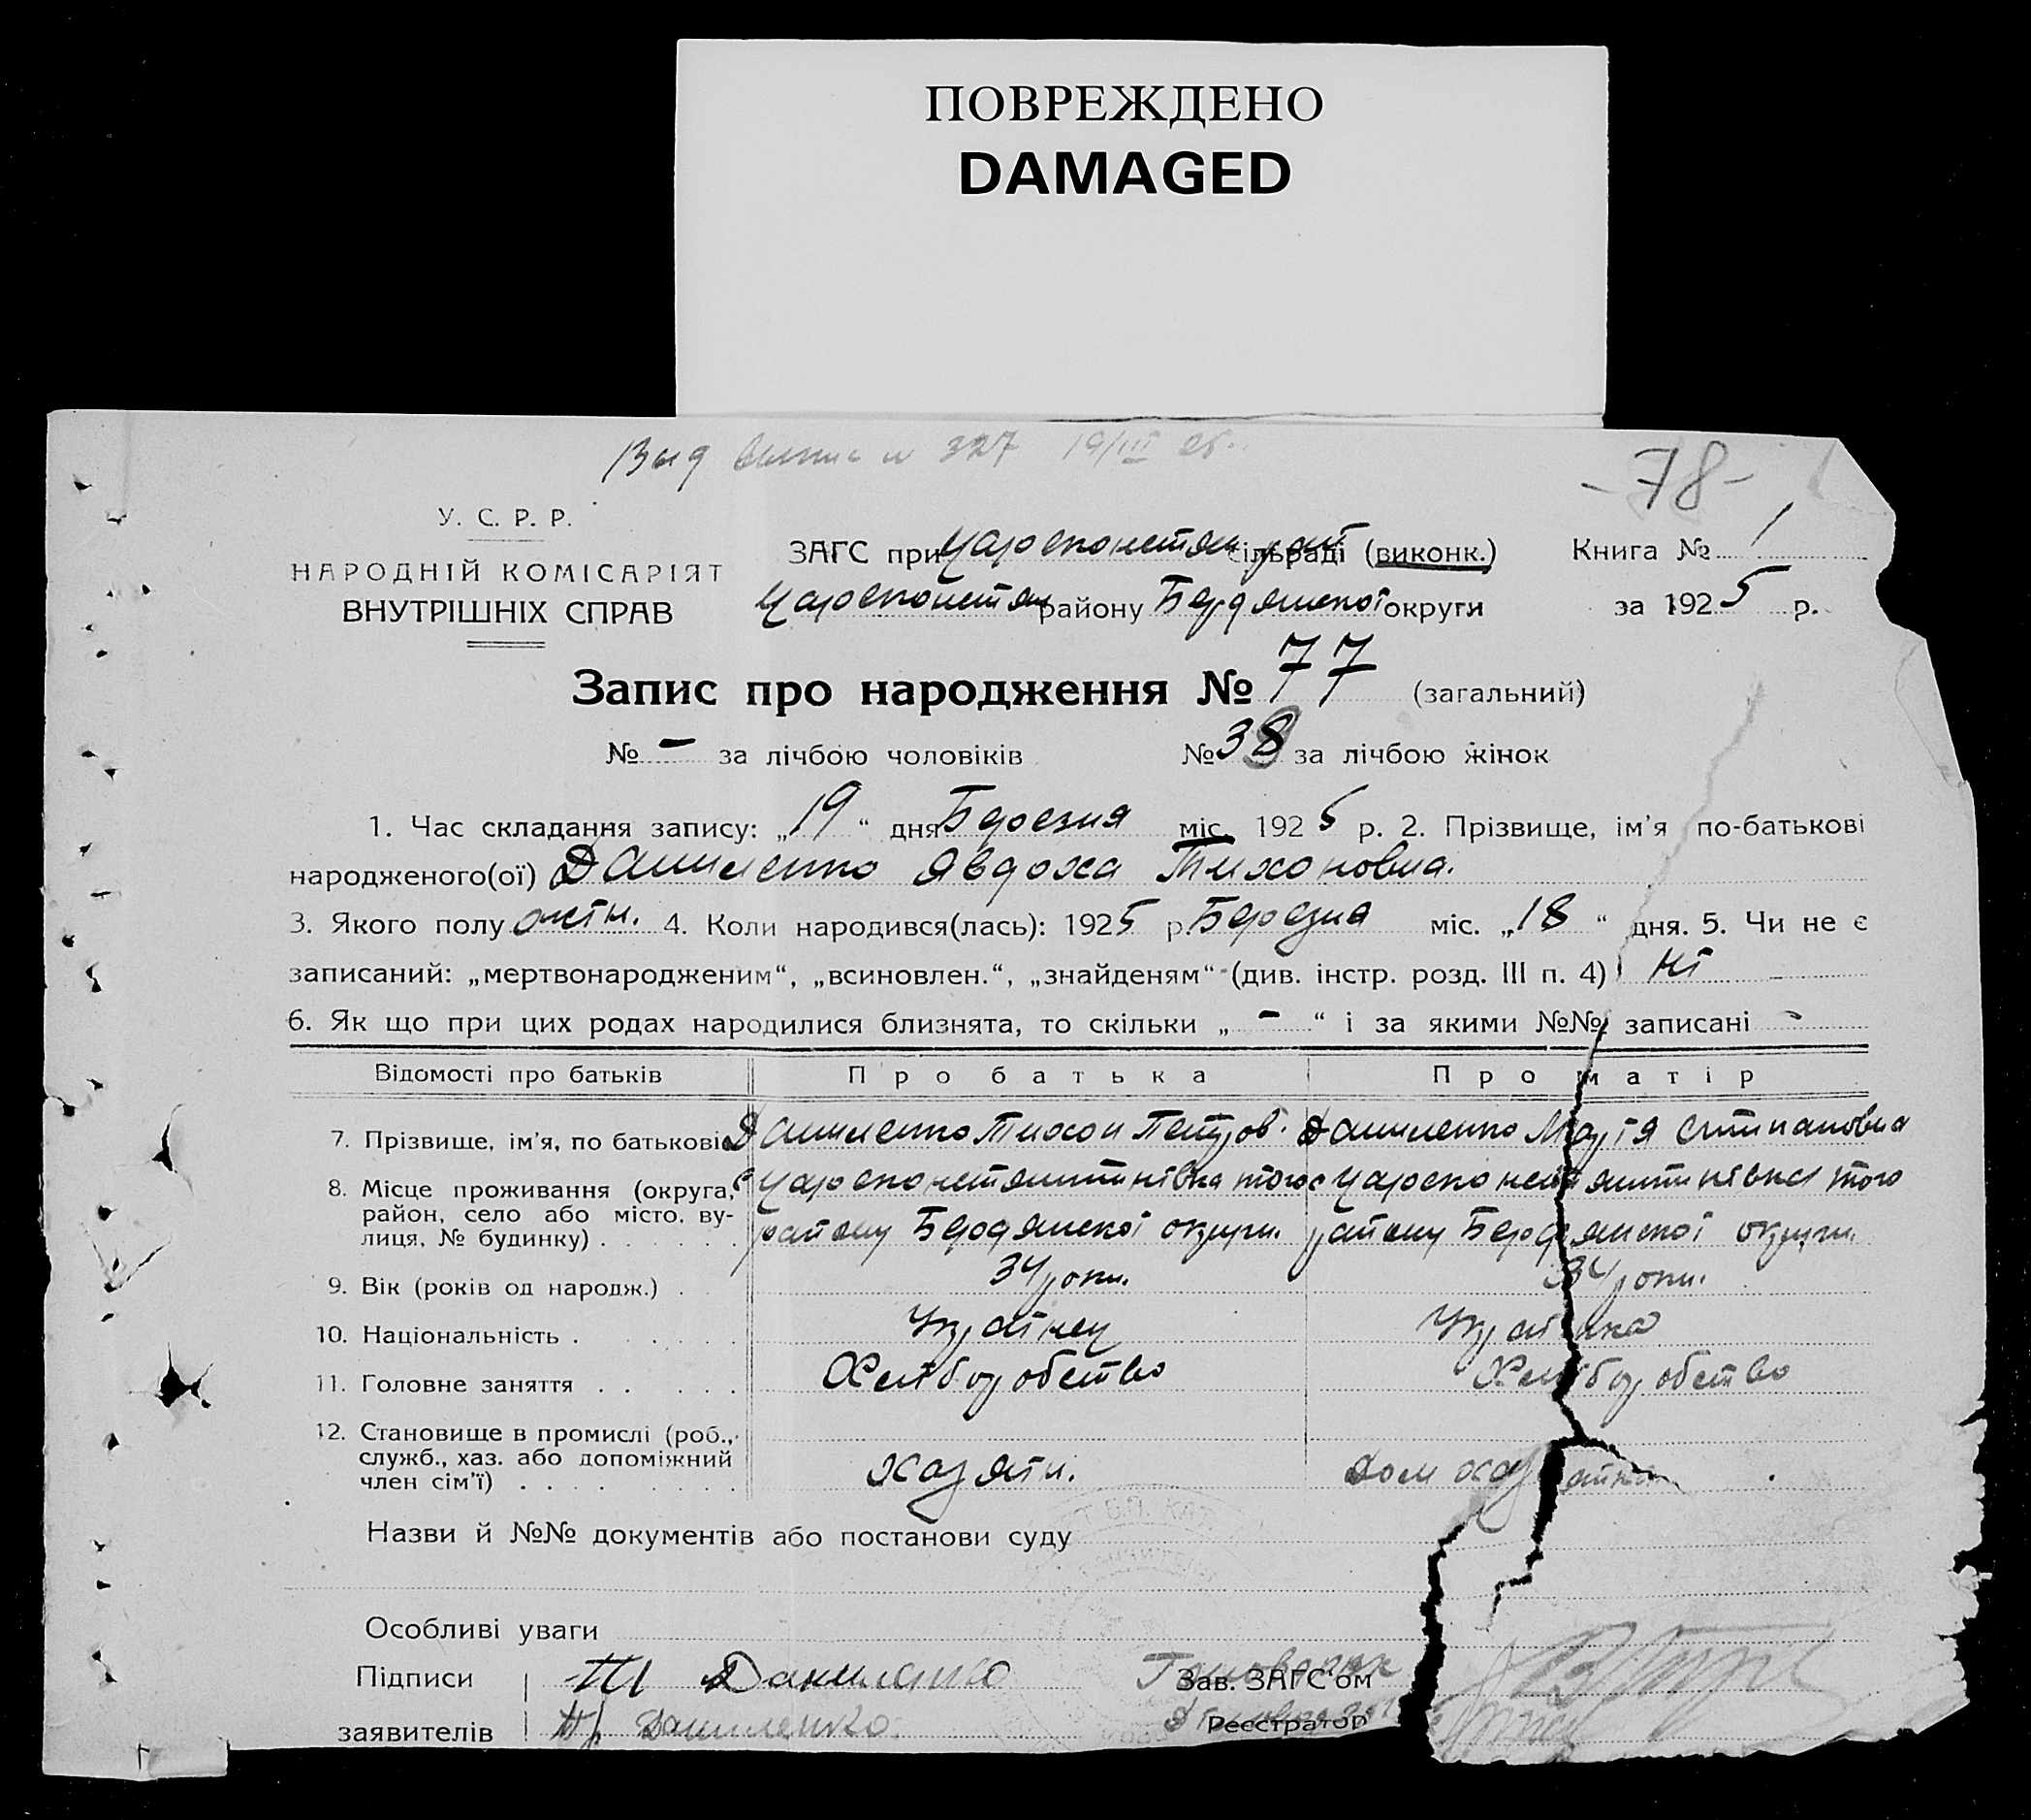 ПОВРЕЖДЕНО
DAMAGED
Выд выпис № 327 19/III 25
-78-
У. С. Р. Р.
НАРОДНІЙ КОМІСАРІЯТ
ВНУТРІШНІХ СПРАВ
ЗАГС при Цароконстян рай сільраді (виконк.)
Цароконстян району Бердянської округи
Книга № 1
за 1925 р.
Запис про народження № 77 (загальний)
№ - за лічбою чоловіків № 38 за лічбою жінок
1. Час складання запису: „19“ дня Березня міс. 1925 р. 2. Прізвище, ім'я по-батькові
народженого(ої) Даниленко Явдоха Тихоновна.
3. Якого полу жін. 4. Коли народився(лась): 1925 р. Березня міс. „18“ дня. 5. Чи не є
записаний: „мертвонародженим“, „всиновлен.“, „знайденям“ (див. інстр. розд. III п. 4) ні
6. Як що при цих родах народилися близнята, то скільки „ - “ і за якими №№ записані -
Відомості про батьків Про батька Про матір
7. Прізвище, ім'я, по батькові Даниленко Тихон Петров. Даниленко Марія Степановна
8. Місце проживання (округа, с Царсконстянтинівка того с Царсконстянтинівка того
район, село або місто, ву-
лиця, № будинку) . . . . . . району Бердянскої округи. району Бердянскої округи.
9. Вік (років од народж.) . 34 роки. 34 роки.
10. Національність . . . . . . Українец Українка
11. Головне заняття . . . . . . Хліборобство Хліборобство
12. Становище в промислі (роб.,
служб., хаз. або допоміжний хазяїн. Домохазяйка
член сім'ї) . . . . . . . .
Назви й №№ документів або постанови суду
Особливі уваги
Підписи Даниленко Зав. ЗАГС'ом
заявителів Даниленко Реєстратор